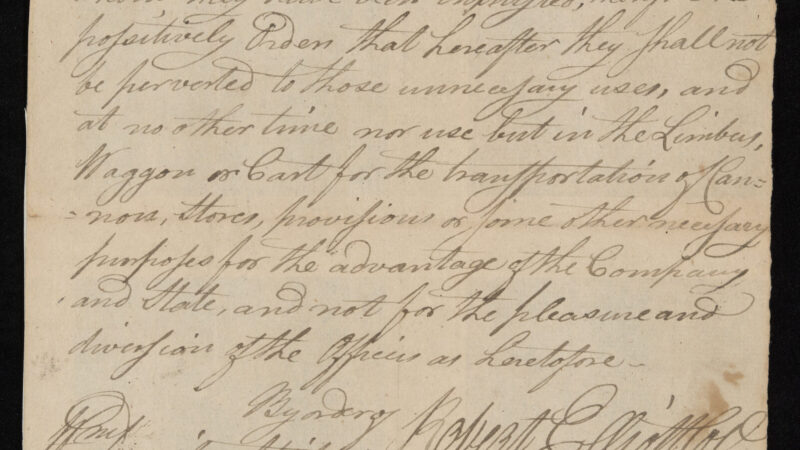 they have been
possitively Order that hereafter they shall not
be perverted to those unnecessary uses, and
at no other time nor use but in the Limber,
Waggon or Cart for the transportation of Can=
=non, Stores, provisions or some other necessary
purposes for the advantage of the Company
and State, and not for the pleasure and
diversion of the Officers as heretofore—
By order of
Robert Elliott Col